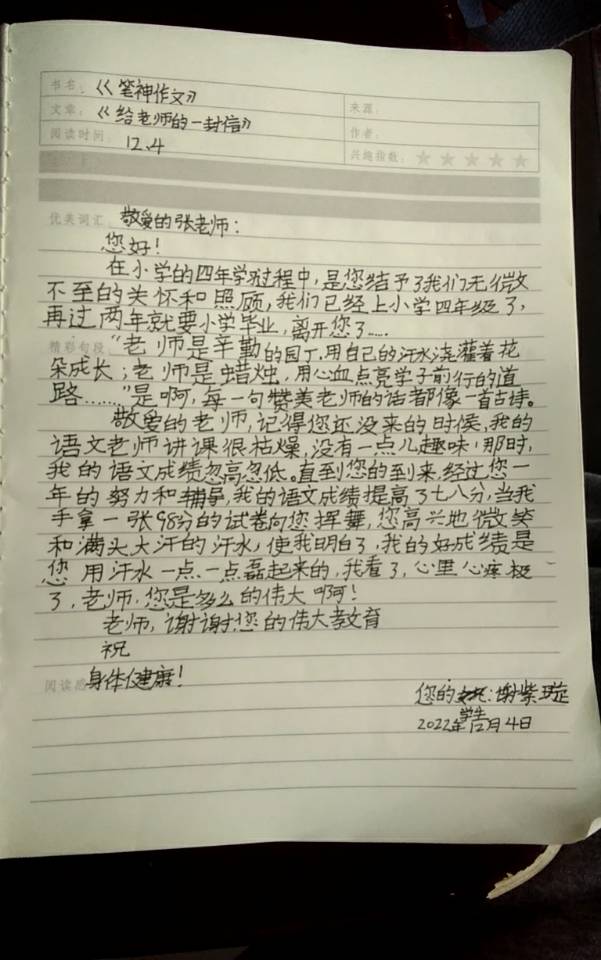 书名：《笔神作文》
来源：
文章：《给老师的一封信》
作者：
阅读时间：12.4
兴趣指数：★★★★★
优美词汇 敬爱的张老师：
您好！
在小学的四年学习过程中，是您结予了我们无微
不至的关怀和照顾，我们已经上小学四年级了，
再过两年就要小学毕业，离开您了……
精彩句段 “老师是辛勤的园丁，用自己的汗水浇灌着花
朵成长；老师是蜡烛，用心血点亮学子前行的道
路……”是啊，每一句赞美老师的话都像一首古诗。
敬爱的老师，记得您还没来的时候，我的
语文老师讲课很枯燥，没有一点儿趣味，那时，
我的语文成绩忽高忽低。直到您的到来，经过您一
年的努力和辅导，我的语文成绩提高了七八分，当我
手拿一张98分的试卷向您挥舞，您高兴地微笑
和满头大汗的汗水，使我明白了，我的好成绩是
您用汗水一点一点磊起来的，我看了，心里心疼极
了，老师，您是多么的伟大啊！
老师，谢谢您的伟大教育
祝
阅读感 身体健康！
您的学生：谢紫璇
2022年12月4日